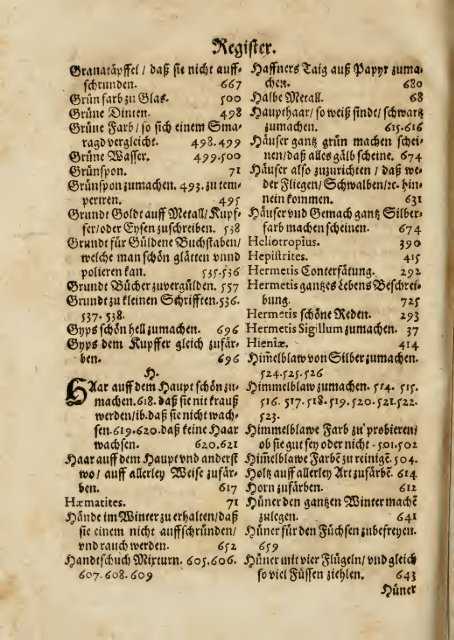 Register.
Granatäpffel / daß sie nicht auff-
schrunden. 667
Grün farb zu Glas. 500
Grüne Dinten. 498
Grüne Farb / so sich einem Sma-
ragd vergleicht. 498. 499
Grüne Wasser. 499. 500
Grünspon. 71
Grünspon zumachen. 493. zu tem-
periren. 495
Grundt Goldt auff Metall / Kupf-
fer / oder Eysen zuschreiben. 538
Grundt für Güldene Buchstaben /
welche man schön glätten vnnd
polieren kan. 535. 536
Grundt Bücher zuvergülden. 557
Grundt zu kleinen Schrifften. 536.
537. 538.
Gyps schön hell zumachen. 696
Gyps dem Kupffer gleich zufär-
ben. 696
H.
Haar auff dem Haupt schön zu-
machen. 618. daß sie nit krauß
werden / ib. daß sie nicht wach-
sen. 619. 620. daß keine Haar
wachsen. 620. 621
Haar auff dem Haupt vnd anderst
wo / auff allerley Weise zufär-
ben. 617
Hæmatites. 71
Hände im Winter zu erhalten / daß
sie einem nicht auffschründen /
vnd rauch werden. 652
Handtschuch Mixturn. 605. 606.
607. 608. 609
Haffners Taig auß Papyr zuma-
chen. 680
Halbe Metall. 68
Haupthaar / so weiß sindt / schwartz
zumachen. 615. 616
Häuser gantz grün machen schei-
nen / daß alles gälb scheine. 674
Häuser also zuzurichten / daß we-
der Fliegen / Schwalben / ꝛc. hin-
nein kommen. 631
Häuser vnd Gemach gantz Silber-
farb machen scheinen. 674
Heliotropius. 390
Hepistrites. 415
Hermetis Conterfätung. 292
Hermetis gantzes Lebens Beschrei-
bung. 725
Hermetis schöne Reden. 293
Hermetis Sigillum zumachen. 37
Hieniæ. 414
Him̃elblaw von Silber zumachen.
524. 525. 526
Himmelblaw zumachen. 514. 515.
516. 517. 518. 519. 520. 521. 522.
523.
Himmelblawe Farb zu probieren /
ob sie gut sey oder nicht. 501. 502
Himmelblawe Farbẽ zu reinigẽ. 504.
Holtz auff allerley Art zufärbẽ. 614
Horn zufärben. 612
Hüner den gantzen Winter machẽ
zulegen. 641
Hüner für den Füchsen zubefreyen.
659
Hüner mit vier Flügeln / vnd gleich
so viel Füssen ziehlen. 643
Hüner